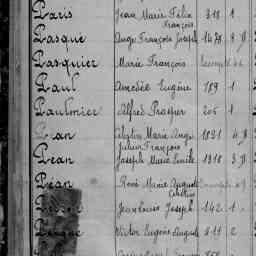 Paris Jean Marie Félix 318 1
François
Pasque Ange François Joseph 1478 8 D
Pasquier Marie François
Paul Amédée Eugène 789 1
Paulmier Alfred Prosper 206 1
Marie Ange 1831 4 D
Julien François
Péan Joseph Marie Emile 1318 3 D
Péan René Marie Auguste
Célestin
Jean Louis Joseph 142 1
Victor Eugène Auguste 511 2